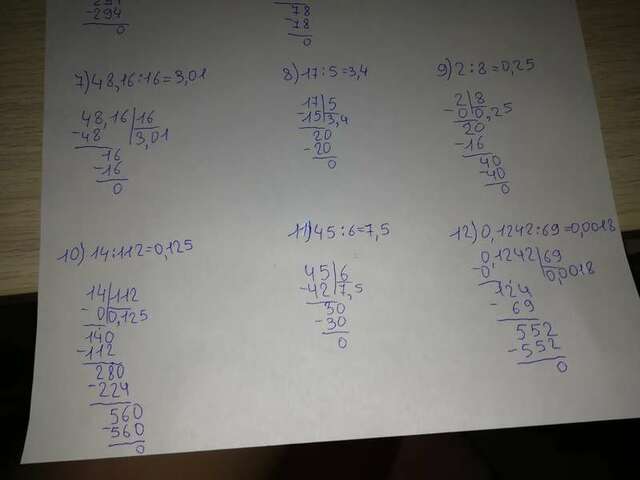 294
-294
0
78
-78
0
7) 48,16:16=3,01
48,16 16
-48 3,01
16
-16
0
8) 17:5=3,4
17 5
-15 3,4
20
-20
0
9) 2:8=0,25
2 8
-0 0,25
20
-16
40
-40
0
10) 14:112=0,125
14 112
-0 0,125
140
-112
280
-224
560
-560
0
11) 45:6=7,5
45 6
-42 7,5
30
-30
0
12) 0,1242:69=0,0018
0,1242 69
-0, 0,0018
124
-69
552
-552
0